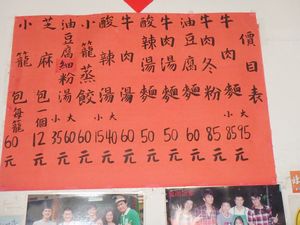 價目表
牛肉麵 小大 85 95 元
牛肉冬粉 85元
油豆腐麵 60元
牛肉湯麵 50元
酸辣湯麵 50元
牛肉湯 60元
酸辣湯 小大 15 40 元
小籠蒸餃 60元
油豆腐細粉湯 小大 35 60 元
芝麻包一個 12元
小籠包每籠 60元